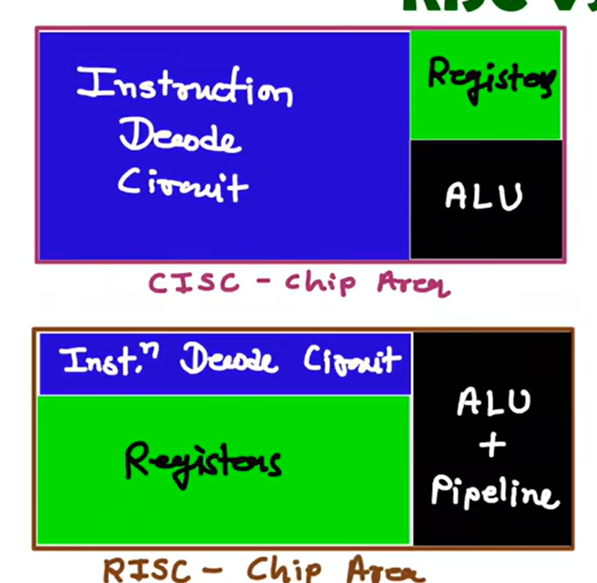 RISC Vs
Instruction
Decode
Circuit
Registers
ALU
CISC - Chip Area
Inst.n Decode Circuit
Registers
ALU
+
Pipeline
RISC - Chip Area